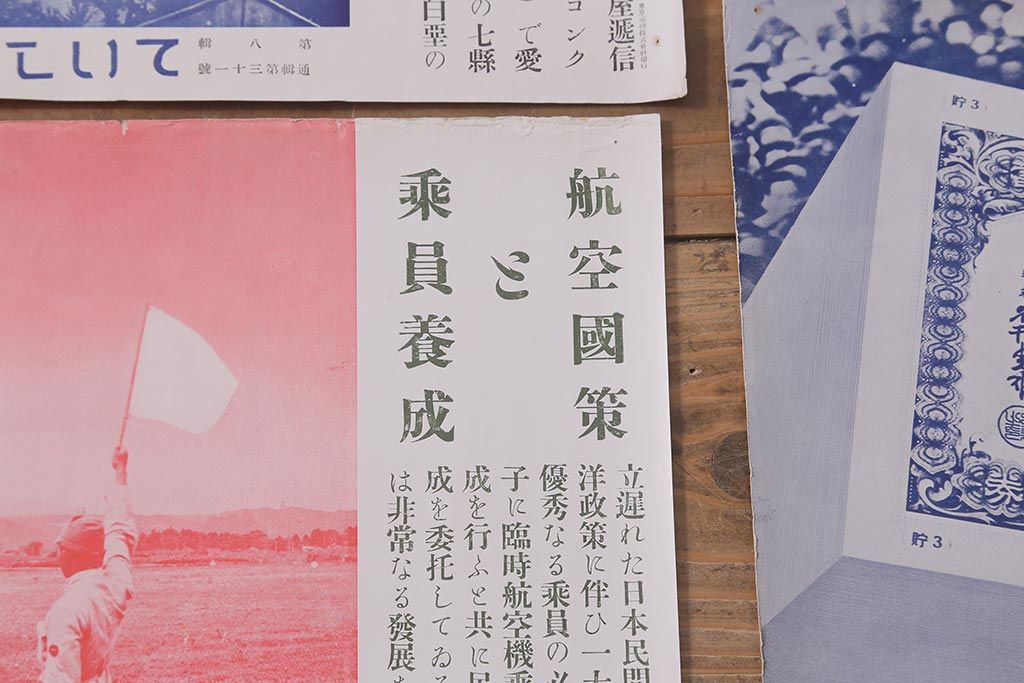 屋遞信
コンク
で愛
の七縣
白堊の
東京印刷株式會社印行
第八輯
通輯第三十一號
こいて
航空國策
と
乘員養成
立遅れた日本民間
洋政策に伴ひ一大
優秀なる乘員の必
子に臨時航空機乘
成を行ふと共に民
成を委托してゐる
は非常なる發展を
(貯3)
券
貯3)